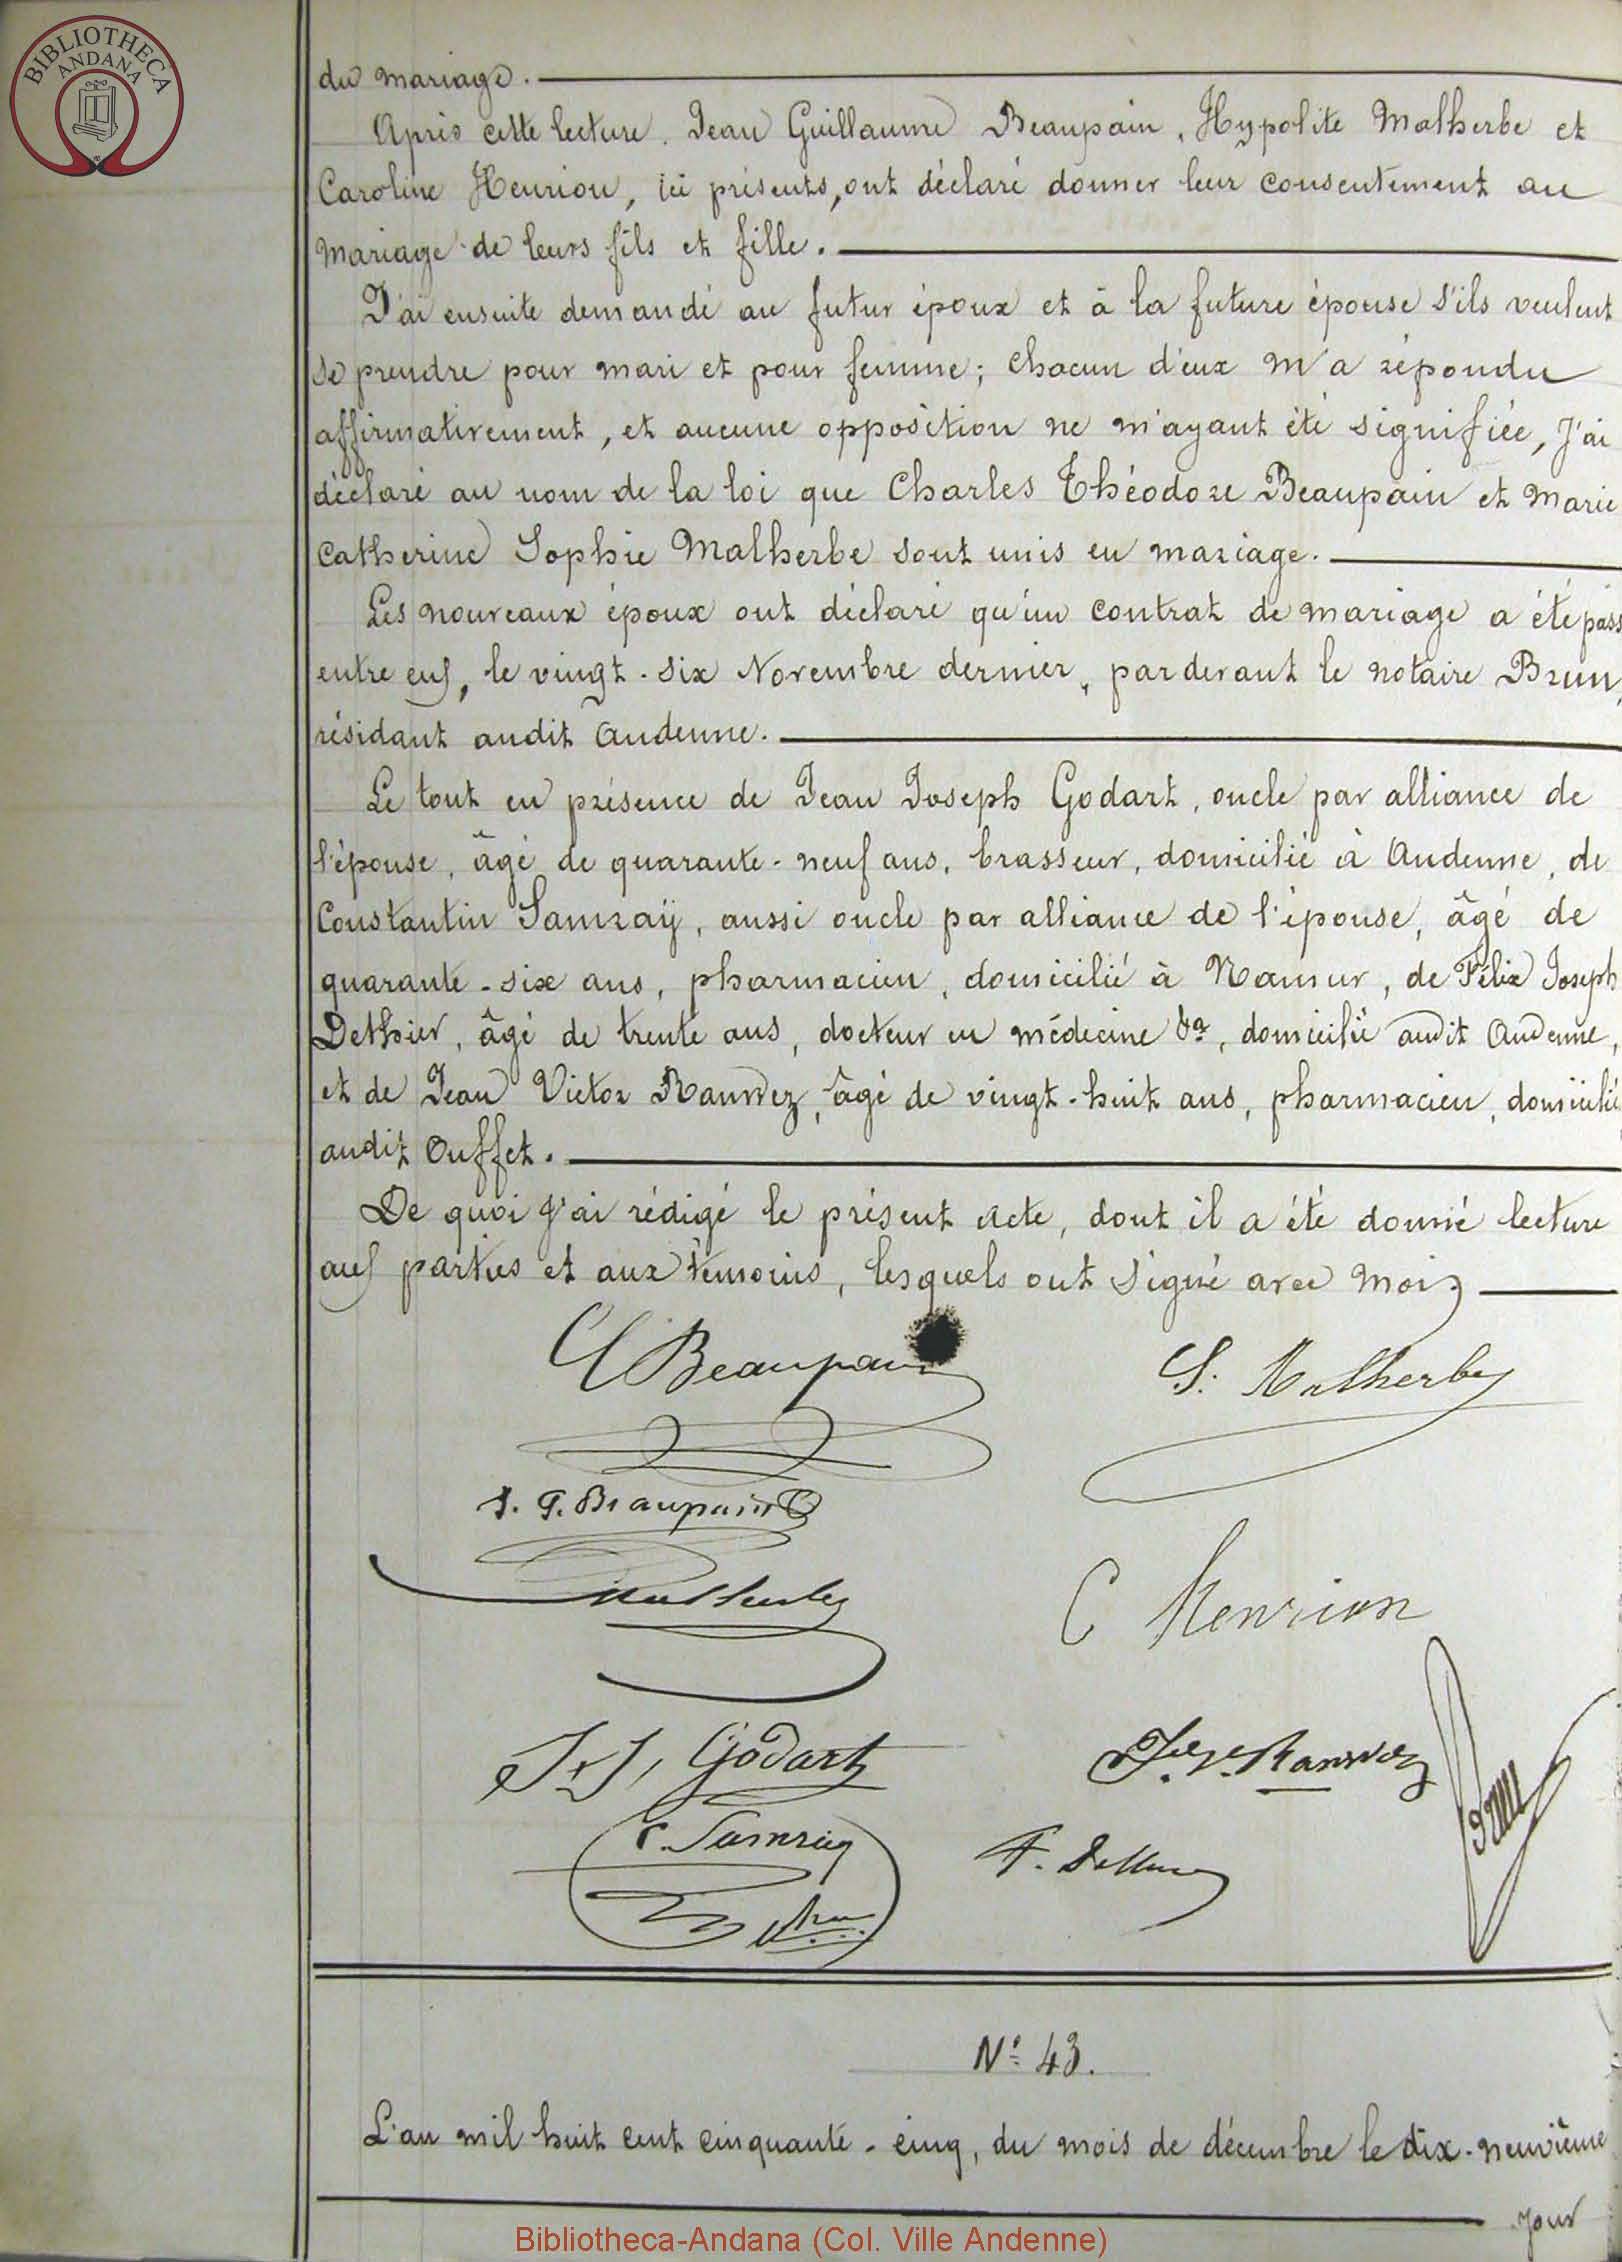 BIBLIOTHECA
ANDANA
du mariage.
Après cette lecture. Jean Guillaume Beaupain, Hypolite Malherbe et
Caroline Henrion, ici présents, ont déclaré donner leur consentement au
mariage de leurs fils et fille.
J'ai ensuite demandé au futur époux et à la future épouse s'ils veulent
se prendre pour mari et pour femme; chacun d'eux m'a répondu
affirmativement, et aucune opposition ne m'ayant été signifiée, j'ai
déclaré au nom de la loi que Charles Théodore Beaupain et Marie
Catherine Sophie Malherbe sont unis en mariage.
Les nouveaux époux ont déclaré qu'un contrat de mariage a été pass
entre eux, le vingt-six Novembre dernier, pardevant le notaire Brun,
résidant audit Andenne.
Le tout en présence de Jean Joseph Godart, oncle par alliance de
l'épouse, âgé de quarante-neuf ans, brasseur, domicilié à Andenne, de
Constantin Samraÿ, aussi oncle par alliance de l'épouse, âgé de
quarante-six ans, pharmacien, domicilié à Namur, de Félix Joseph
Dethier, âgé de trente ans, docteur en médecine &a, domicilié audit Andenne,
et de Jean Victor Ranwez, âgé de vingt-huit ans, pharmacien, domicilié
audit Ouffet.
De quoi j'ai rédigé le présent acte, dont il a été donné lecture
aux parties et aux témoins, lesquels ont signé avec moi
Beaupain
S. Malherbe
J. G. Beaupain
Malherbe
C Henrion
J. J. Godart
J. V. Ranwez
Brun
C. Samray
F. Dethier
Nº 43.
L'an mil huit cent cinquante-cinq, du mois de décembre le dix-neuvième
jour
Bibliotheca-Andana (Col. Ville Andenne)